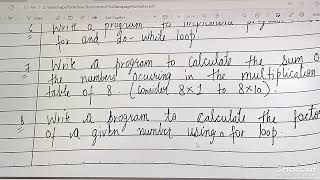 6 Write a program to implement program
for and do-while loop.
7 Write a program to calculate the sum o
the numbers occuring in the multiplication
table of 8. (consider 8x1 to 8x10)
8 Write a program to calculate the facto
of a given number using a for loop.